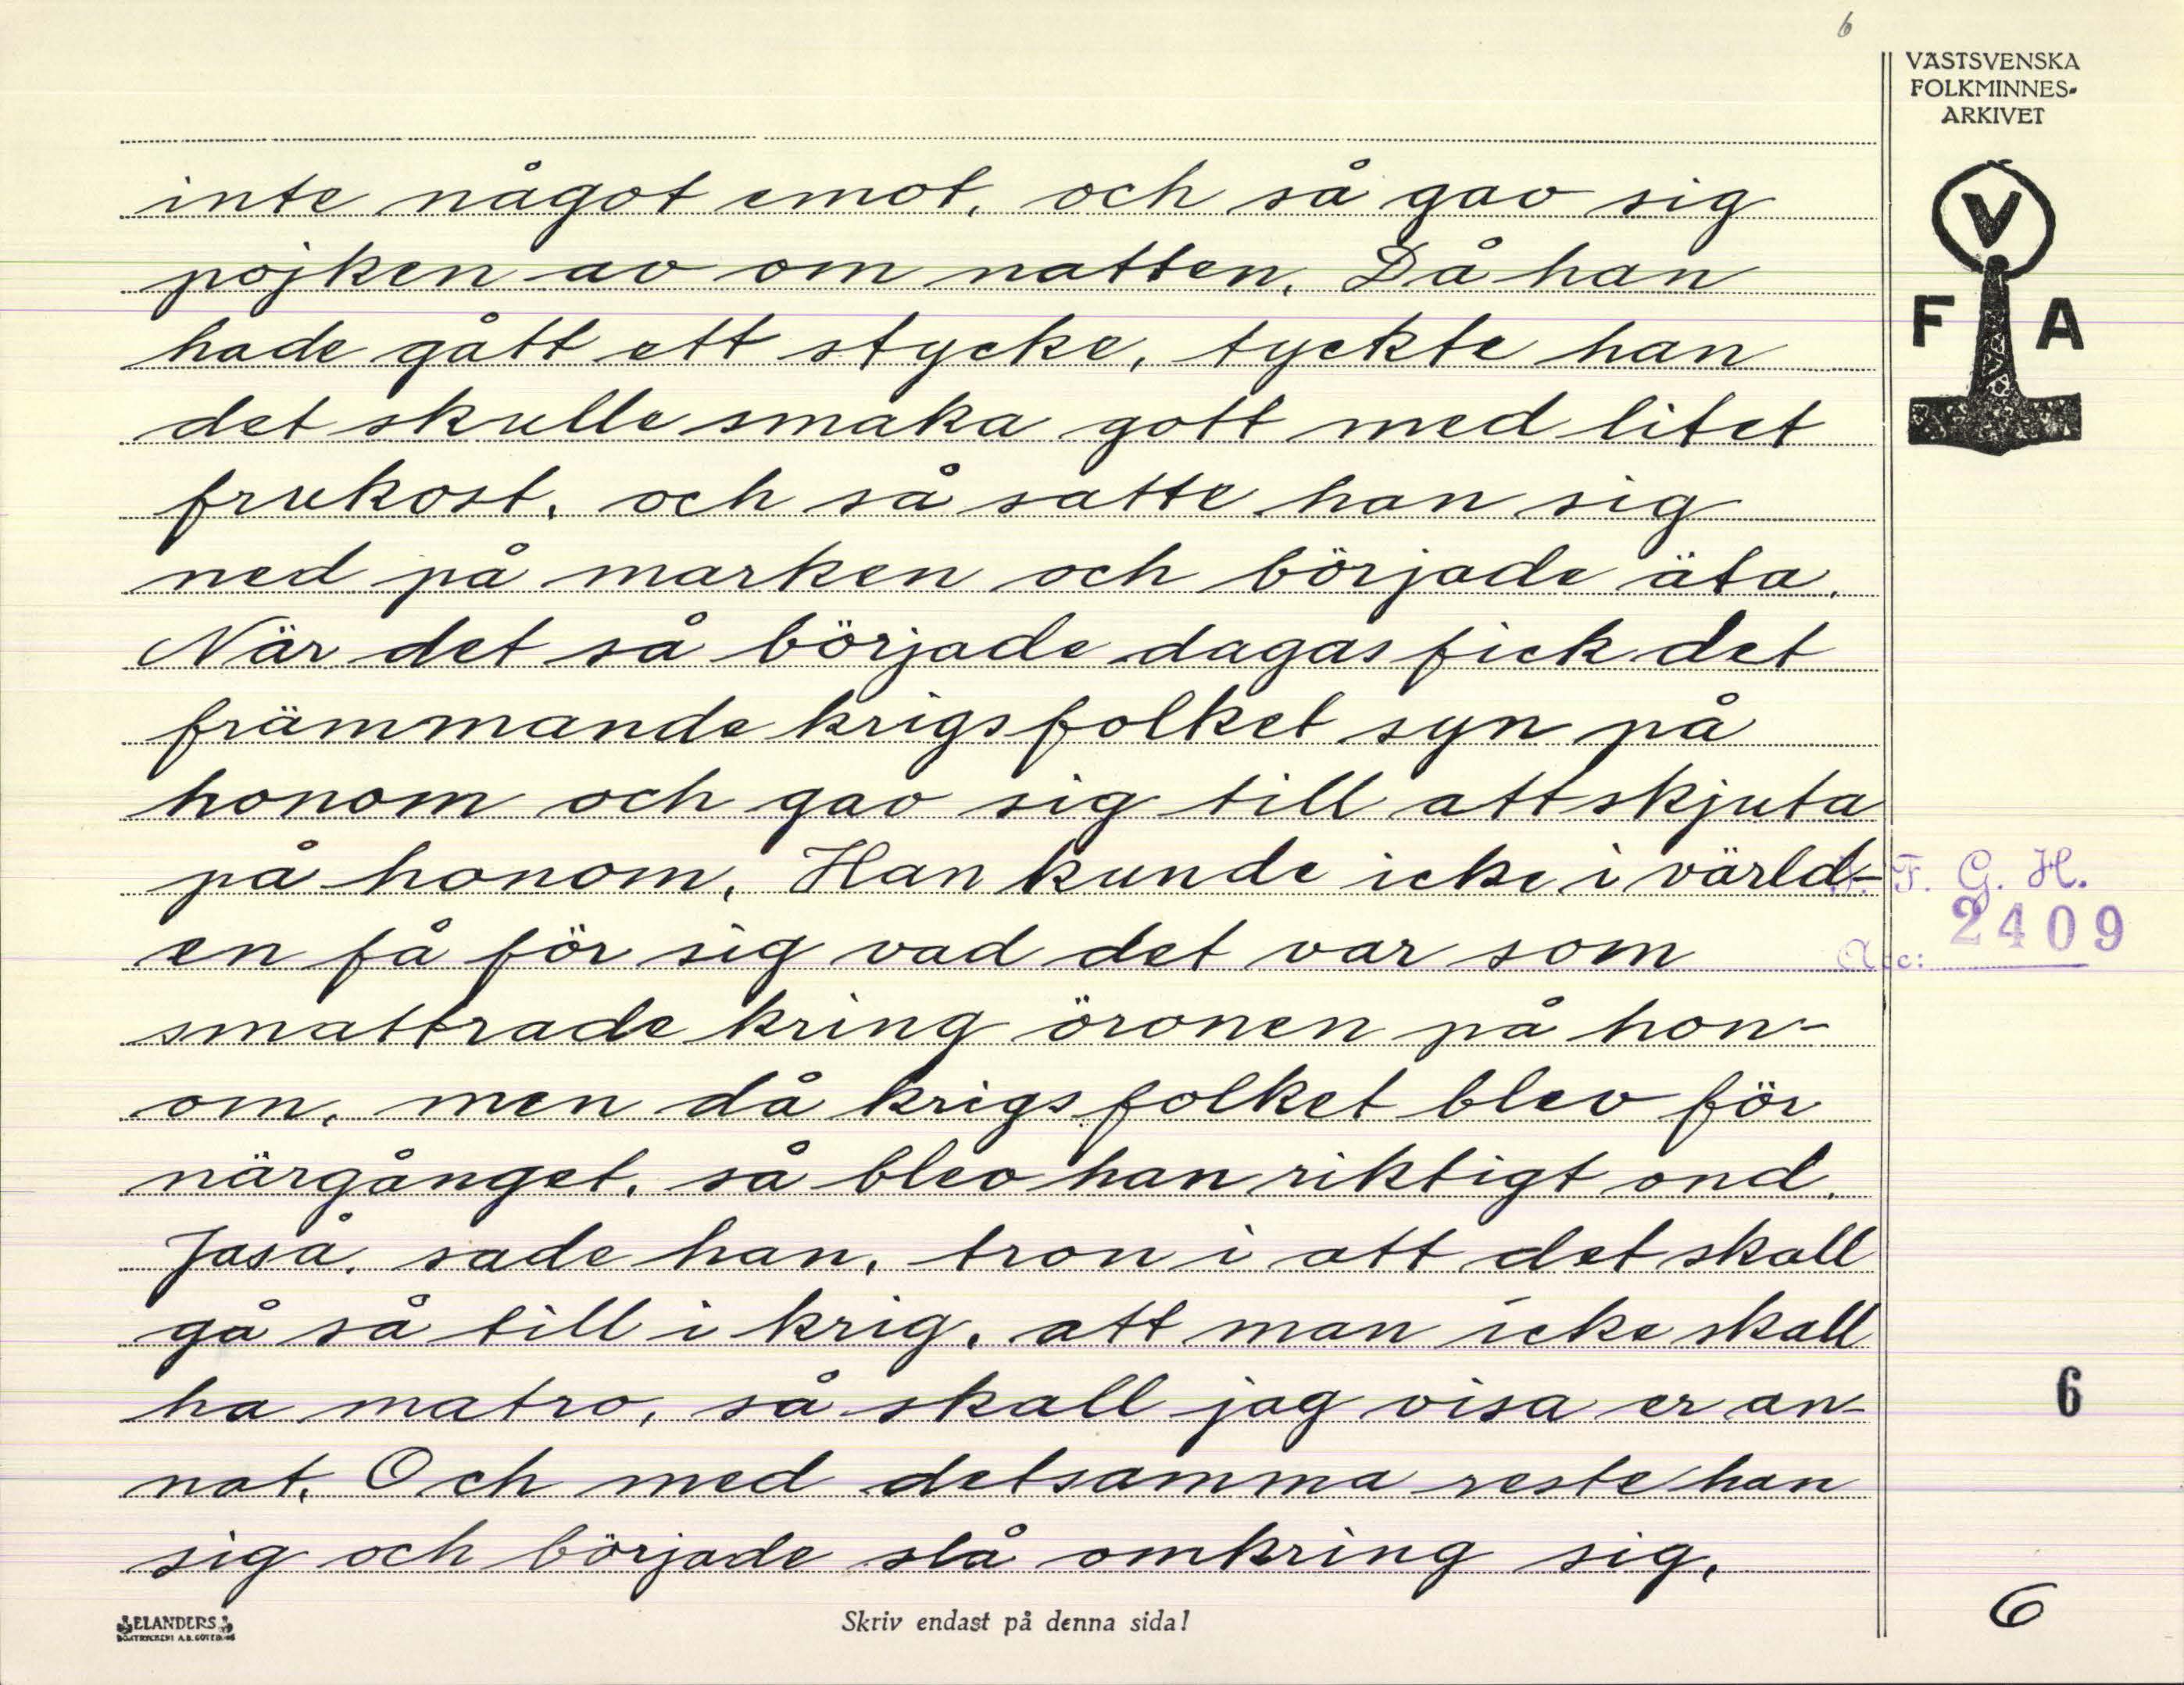 6
VÄSTSVENSKA
FOLKMINNES-
ARKIVET
V
F A
inte något emot, och så gav sig
pojken av om natten. Då han
hade gått ett stycke, tyckte han
det skulle smaka gott med litet
frukost, och så satte han sig
ned på marken och började äta.
När det så började dagas fick det
främmande krigsfolket syn på
honom och gav sig till att skjuta
på honom. Han kunde icke i värld-
en få för sig vad det var som
smattrade kring öronen på hon-
om, men då krigsfolket blev för
närgånget, så blev han riktigt ond.
Jaså, sade han, tron i att det skall
gå så till i krig, att man icke skall
ha matro, så skall jag visa er an-
nat. Och med detsamma reste han
sig och började slå omkring sig,
F. G. H.
2409
Acc:
6
6
ELANDERS
Skriv endast på denna sida!